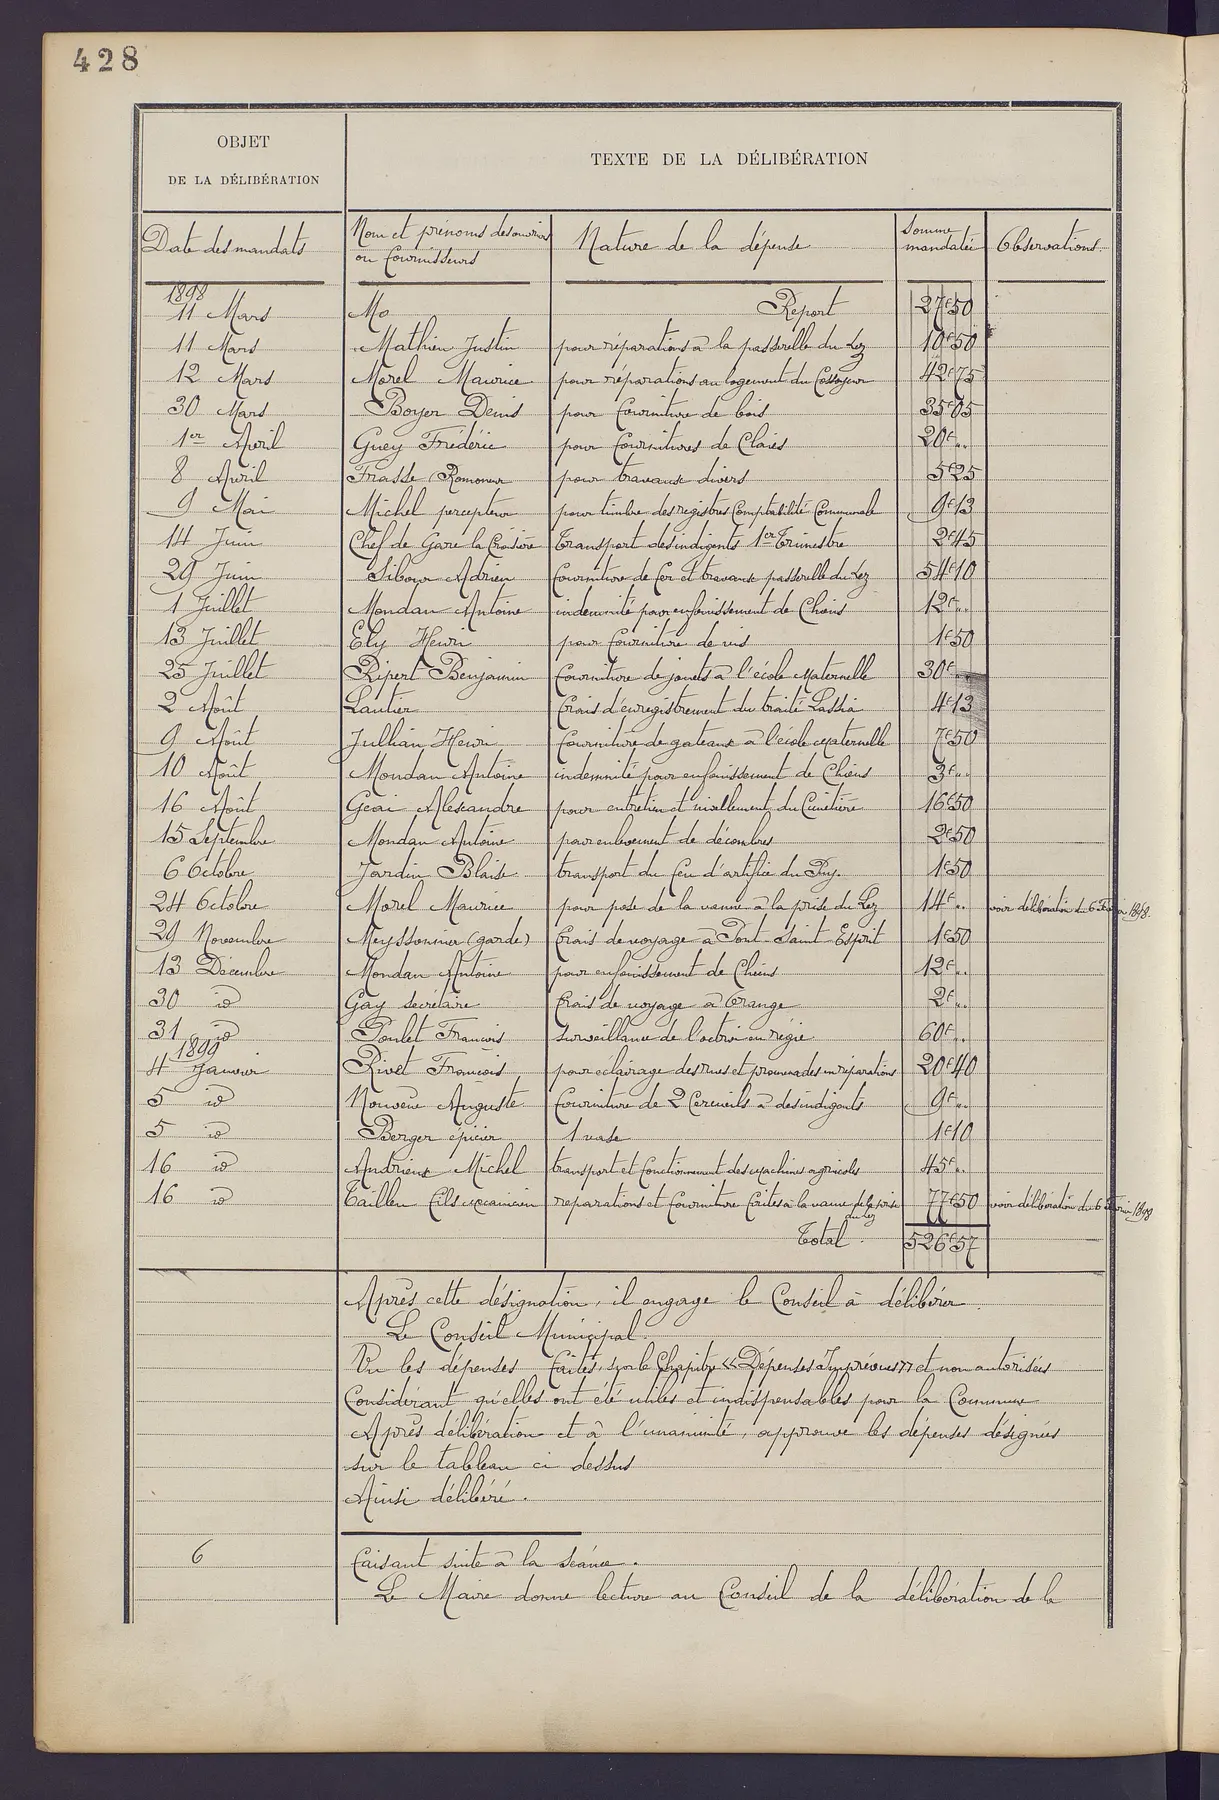 428
OBJET
DE LA DÉLIBÉRATION
TEXTE DE LA DÉLIBÉRATION
Date des mandats Nom et prénoms des ouvriers ou Fournisseurs Nature de la dépense Somme mandatée Observations
1898
11 Mars Mo Report 27f50
11 Mars Mathieu Justin pour réparations à la passerelle du Lez 10f50
12 Mars Morel Maurice pour réparations au logement du Fossoyeur 42f75
30 Mars Boyer Denis pour fourniture de bois 35f05
1er Avril Guey Frédéric pour fournitures de Claies 20f"
8 Avril Frasse Romoneur pour travaux divers 5f25
9 Mai Michel percepteur pour timbre des registres Comptabilité Communale 9f13
14 Juin Chef de Gare la Croisière Transport des indigents 1er Trimestre 2f45
29 Juin Sibour Adrien fourniture de fer et travaux passerelle du Lez 54f10
1 Juillet Mondan Antoine indemnité pour enfouissement de Chiens 12f"
13 Juillet Ely Henri pour fourniture de vis 1f50
25 Juillet Ripert Benjamin fourniture de jouets à l'école Maternelle 30f"
2 Août Lautier frais d'enregistrement du traité Lassia 4f13
9 Août Jullian Henri fourniture de gateaux à l'école Maternelle 7f50
10 Août Mondan Antoine indemnité pour enfouissement de Chiens 3f"
16 Août Geai Alexandre pour entretien et nivellement du Cimetière 16f50
15 Septembre Mondan Antoine pour enlèvement de décombres 2f50
6 Octobre Jardin Blaise transport du feu d'artifice du Puy. 1f50
24 Octobre Morel Maurice pour pose de la vanne à la prise du Lez 14f" voir délibération du 6 1898.
29 Novembre Meyssonnier (garde) frais de voyage à Pont-Saint-Esprit 1f50
13 Décembre Mondan Antoine pour enfouissement de Chiens 12f"
30 id Gay secrétaire frais de voyage à Orange 2f"
31 id Poulet François surveillance de l'octroi en régie 60f"
1899
4 Janvier Rivet François pour éclairage des rues et promenades en réparations 20f40
5 id Nouvène Auguste fourniture de 2 Cercueils à des indigents 9f"
5 id Berger épicier 1 vase 1f10
16 id Andrieux Michel transport et fonctionnement des machines agricoles 45f"
16 id Taillen fils mécanicien reparations et fourniture faites à la vanne de la prise du Lez 77f50 voir délibération du 6 Février 1898
Total 526f57
Après cette désignation, il engage le Conseil à délibérer.
Le Conseil Municipal.
Vu les dépenses faites, sur le Chapitre «Dépenses Imprévues» et non autorisées
Considérant qu'elles ont été utiles et indispensables pour la Commune
Après délibération et à l'unanimité, approuve les dépenses désignées
sur le tableau ci dessus
Ainsi délibéré.
6 Faisant suite à la séance.
Le Maire donne lecture au Conseil de la délibération de la